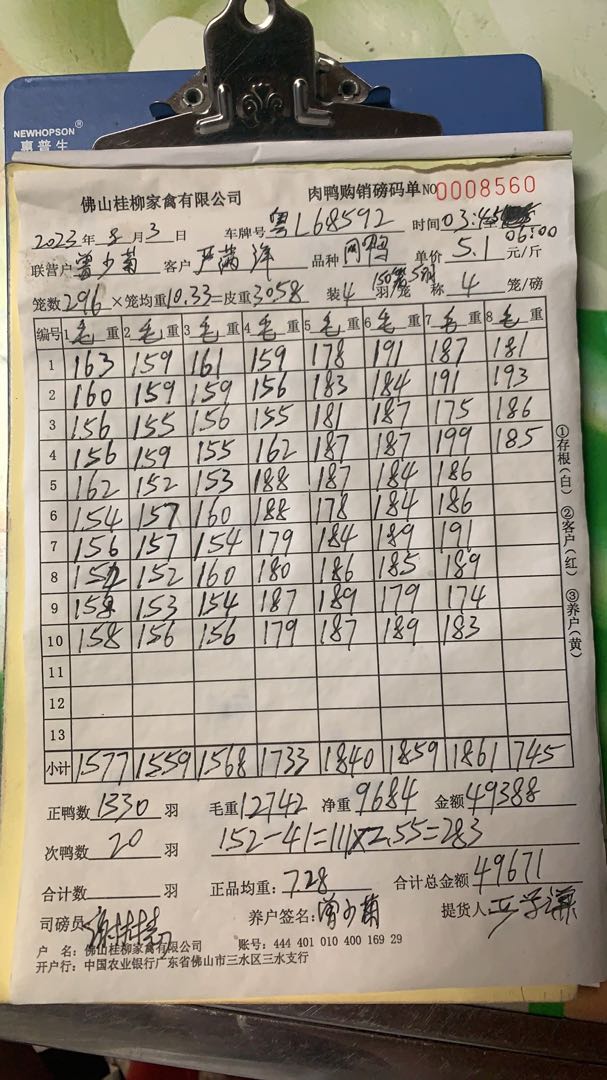 NEWHOPSON®
惠普生
佛山桂柳家禽有限公司 肉鸭购销磅码单NO 0008560
2023年8月3日 车牌号 粤L68592 时间 03:45
06:00
联营户 曾少菊 客户 品种 网鸭 单价 5.1 元/斤
笼数 296 ×笼均重 10.33=皮重 3058 装 4 羽/笼 称 4 笼/磅
编号 1 毛 重 2 毛 重 3 毛 重 4 毛 重 5 毛 重 6 毛 重 7 毛 重 8 毛 重
1 163 159 161 159 178 191 187 181
2 160 159 159 156 183 184 191 193
3 156 155 156 155 181 187 175 186
4 156 159 155 162 187 187 199 185
5 162 152 153 188 187 184 186
6 154 157 160 188 178 184 186
7 156 157 154 179 184 189 191
8 152 152 160 180 186 185 189
9 158 153 154 187 189 179 174
10 158 156 156 179 187 189 183
11
12
13
小计 1577 1559 1568 1733 1840 1859 1861 745
①存根(白) ②客户(红) ③养户(黄)
正鸭数 1330 羽 毛重 12742 净重 9684 金额 49388
次鸭数 20 羽 152-41=111×2.55=283
合计数 羽 正品均重: 7.28 合计总金额 49671
司磅员: 养户签名: 曾少菊 提货人:
户 名: 佛山桂柳家禽有限公司 账号: 444 401 010 400 169 29
开户行: 中国农业银行广东省佛山市三水区三水支行